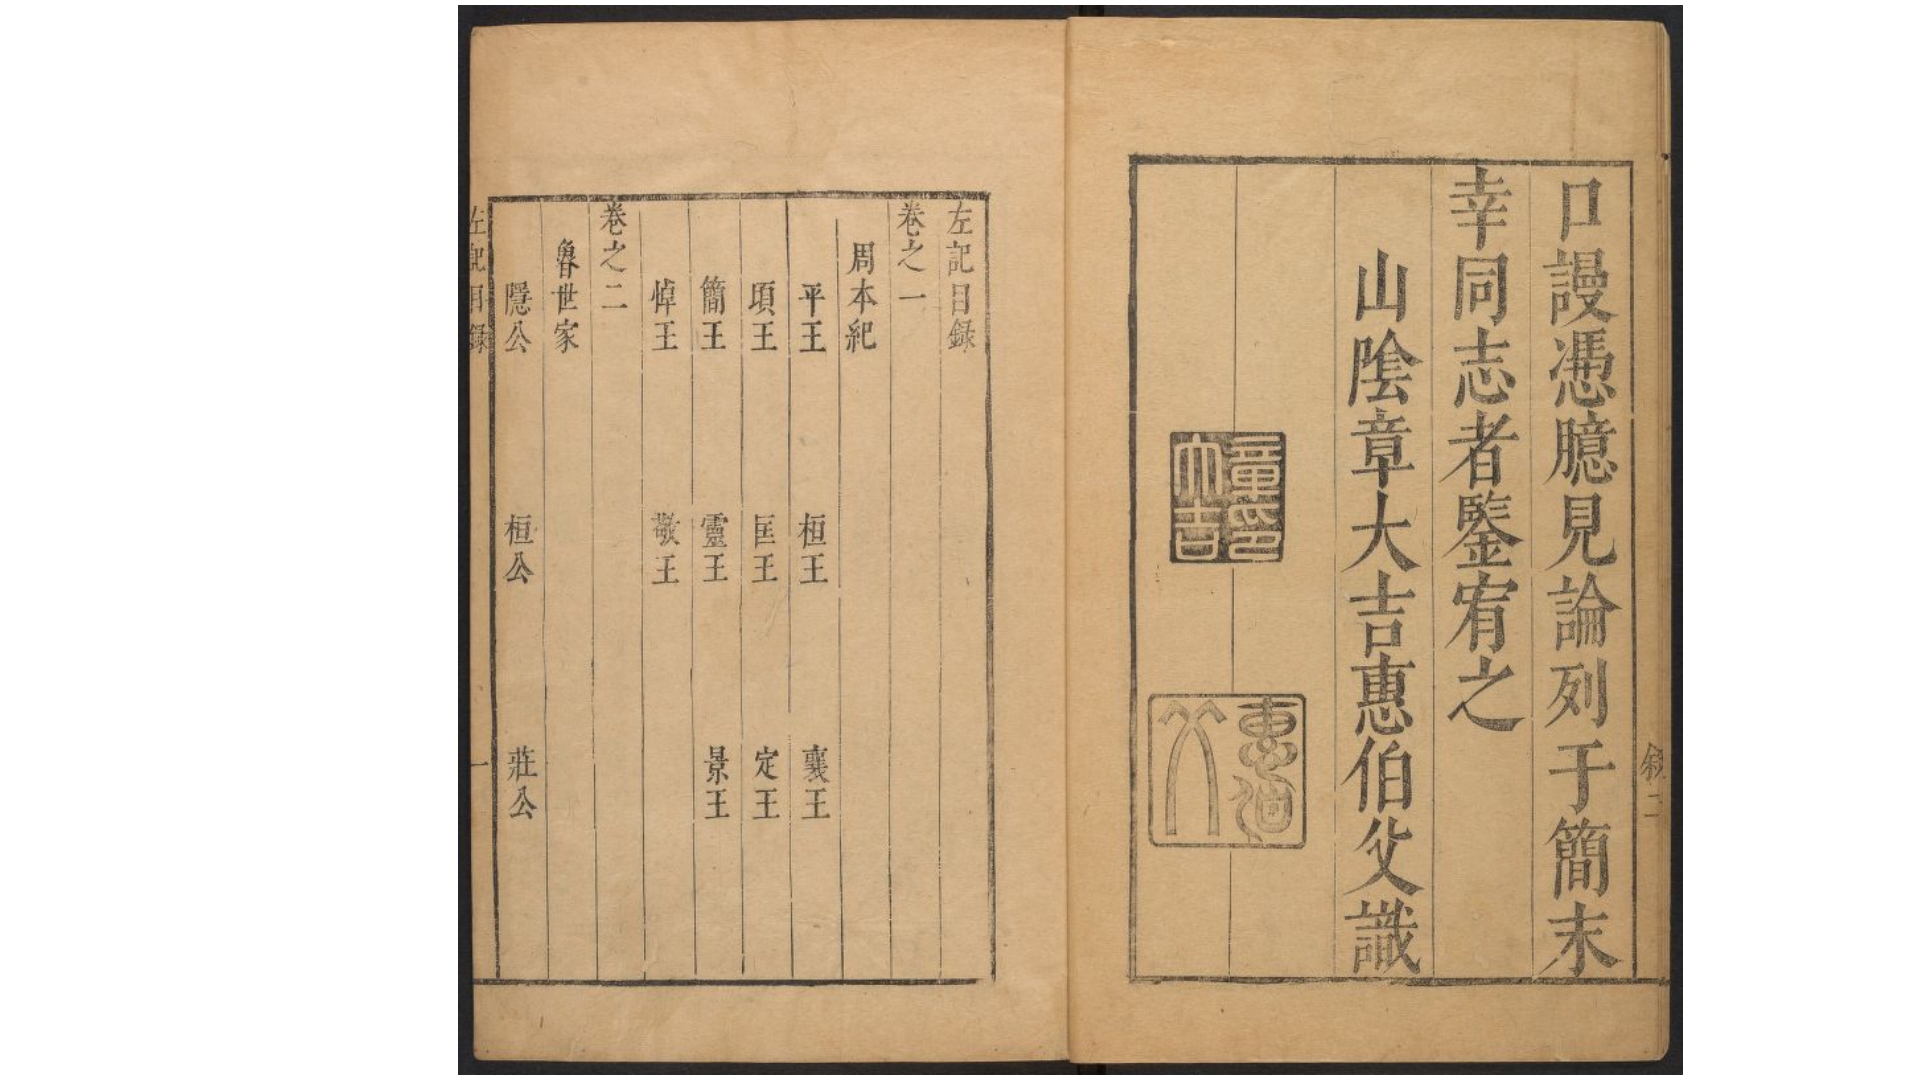 口謾憑臆見論列于簡末
幸同志者鑒宥之
山陰章大吉惠伯父識
章印大吉
惠伯父
敘 二
左記目録
卷之一
周本紀
平王 桓王 襄王
頃王 匡王 定王
簡王 靈王 景王
悼王 敬王
卷之二
魯世家
隱公 桓公 莊公
左記目録 一